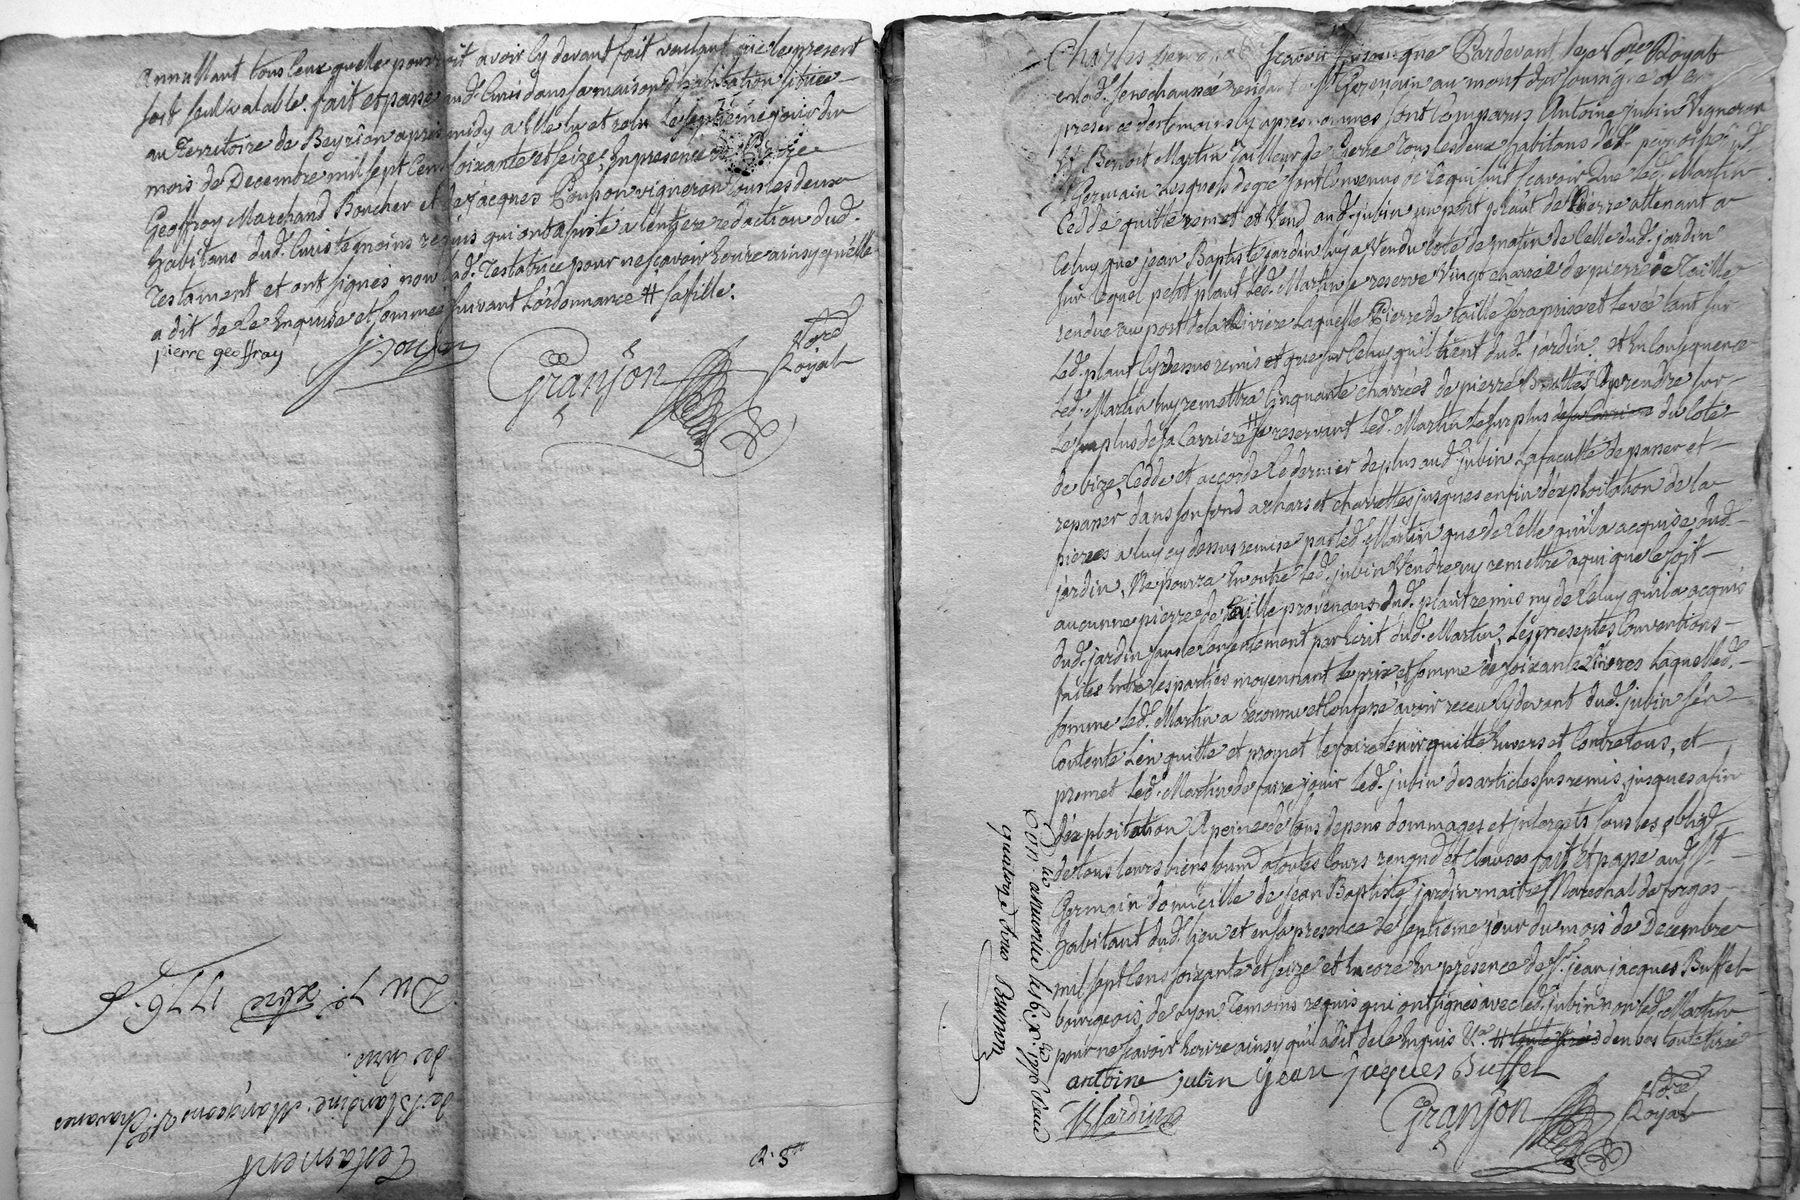 annullant tous ceux qu'elle pourroit avoir cy devant fait voulant que le present
soit seul valable. fait et passé aud. Curis dans sa maison d'habitation scituée
au Territoire de Beyrion apres midy a elle lu et relu le septieme jour du
mois de Decembre mil sept Cens soixante et seize, En presence de Pierre
Geoffroy Marchand Boucher et de Jacques Coupon vigneron tous les deux
habitans dud. Curis temoins requis qui ont assisté a l'entiere redaction dud.
Testament et ont signés non lad. Testatrice pour ne scavoir Ecrire ainsy qu'elle
a dit de ce Enquise et sommée suivant L'ordonnance # sa fille.
pierre geoffray
Granjon
No.re
Royal
Testament
de Blandine Mangeons Ve. Chavanes
de Curis.
Du 7e. xbre 1776.
R. 3tt
Charles scavoir faisons que Pardevant le No.re Royal
en lad. senechaussée residant a St Germain au mont d'or soussigné et en
presence des temoins cy apres nommes sont Comparus Antoine Jubin Vigneron
et Benoit Martin Tailleur de Pierre Tous les deux habitans dud. St
Germain Lesquels de gré sont Convenus de Ce qui suit scavoir Que led. Martin
Cedde quitte remet et Vend aud. jubin un petit plant de Pierre attenant a
Celuy que jean Baptiste jardin luy a Vendu Coté de matin de Celle dud. jardin
sur lequel petit plant Led. Martin se reserve Vingt charrées de pierre de Taille
rendue au port de la Riviere Laquelle Pierre de taille sera prise et levée tant sur
Led. plant cy dessus remis et que sur Celuy qu'il tient dud. jardin. et En Consequence
Led. Martin luy remettra Cinquante charrées de pierre Bruttes a prendre sur
le surplus de sa Carriere # se reservant Led. Martin Le surplus de sa Carriere du Coté
de bize, Cedde et accorde Ce dernier de plus aud. jubin La faculté de passer et
repasser dans son fond a chars et charrettes jusques en fin d'exploitation de la
pierres a luy cy dessus remise par led. Martin que de Celle qu'il a acquise dud.
jardin, Ne pourra En outre Led. jubin Vendre ny remettre a qui que Ce soit
aucunne pierre de Taille provenans dud. plant remis ny de Celuy qu'il a acquis
dud. jardin sans le Consentement par Ecrit dud. Martin, Les presentes Conventions
faites Entre les parties moyennant le prix et somme de soixante Livres Laquelle d.
somme Led. Martin a reconnu et Confessé avoir receu cy devant dud. jubin s'en
Contente L'en quitte et promet le faire tenir quitte Envers et Contre tous, et
promet Led. Martin de faire jouir Led. jubin des articles sus remis, jusques a fin
d'exploitation A peine de tous depens dommages et interests sous les oblig.
de tous leurs biens soum. a toutes Cours renond. et Clauses fait et passé aud. St
Germain domicille de Jean Baptiste jardin maitre Marechal de forges
habitant dud. lieu et en sa presence Le septieme jour du mois de Decembre
mil sept Cens soixante et seize et Encore En presence de Sr. jean jacques Buffet
bourgeois de Lyon Temoins requis qui ont signés avec led. jubin non led. Martin
pour ne scavoir Ecrire ainsy qu'il a dit de ce Enquis &a. # toute tirée d'en bas toute tirée
antoine jubin jean jaques Buffet
B Jardin
Granjon
No.re
Royal
C.lé a neuville le 16. x.bre 1776 Reçu
quatorze sous Brunon